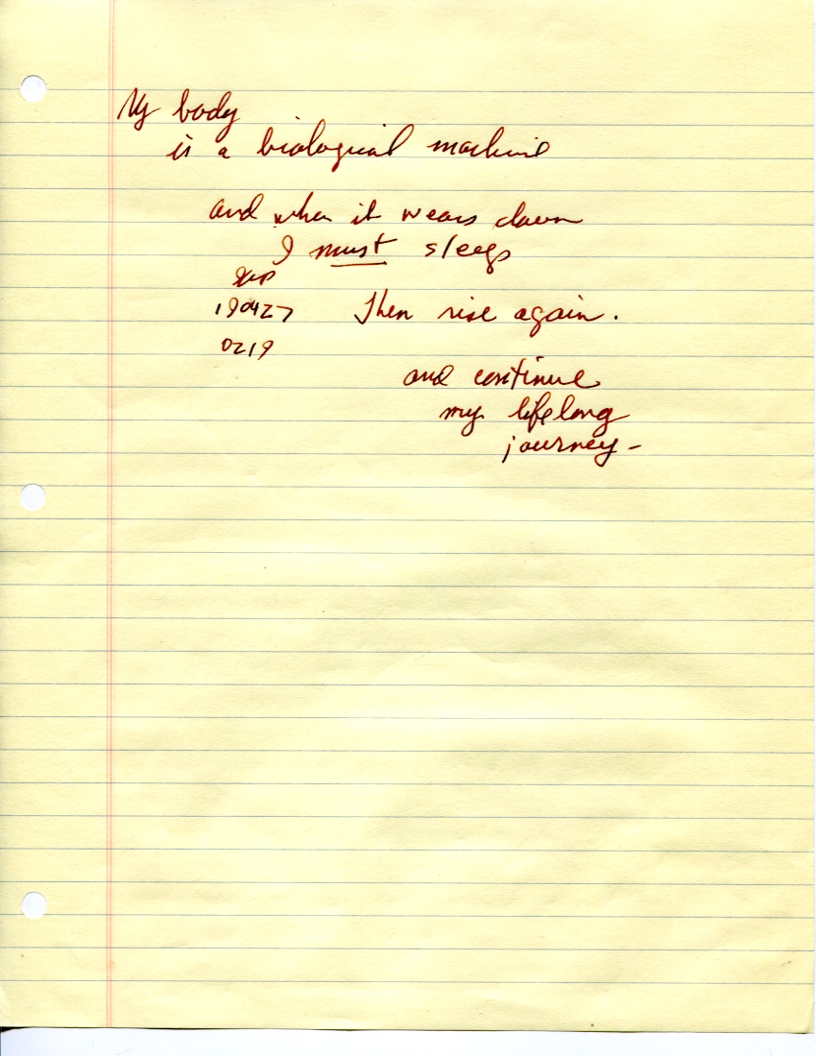 My body
is a biological machine
and when it wears down
I must sleep
190427 Then rise again.
0219
and continue
my lifelong
journey-